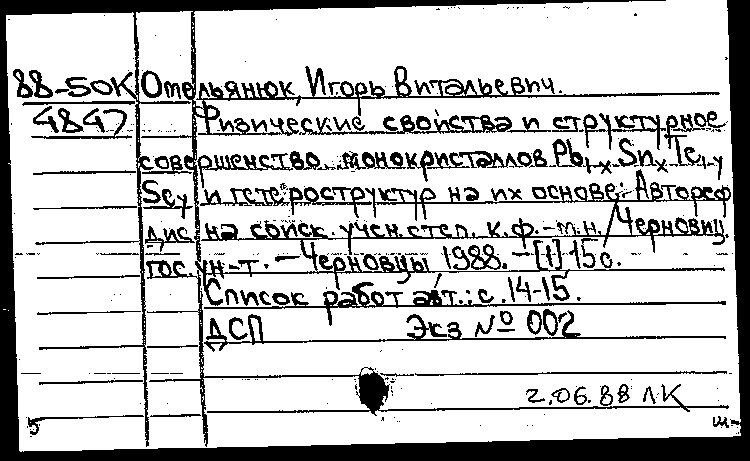 88-50К Омельянюк, Игорь Витальевич.
4847 Физические свойства и структурное
совершенство монокристаллов Pb₁₋ₓSnₓTe₁₋ᵧ
Seᵧ и гетероструктур на их основе: Автореф
дис. на соиск. учен. степ. к.ф.-м.н. /Черновиц.
гос. ун-т. - Черновцы 1988. - [1] 15с.
Список работ авт.: с. 14-15.
ДСП Экз № 002
2.06.88 ЛК